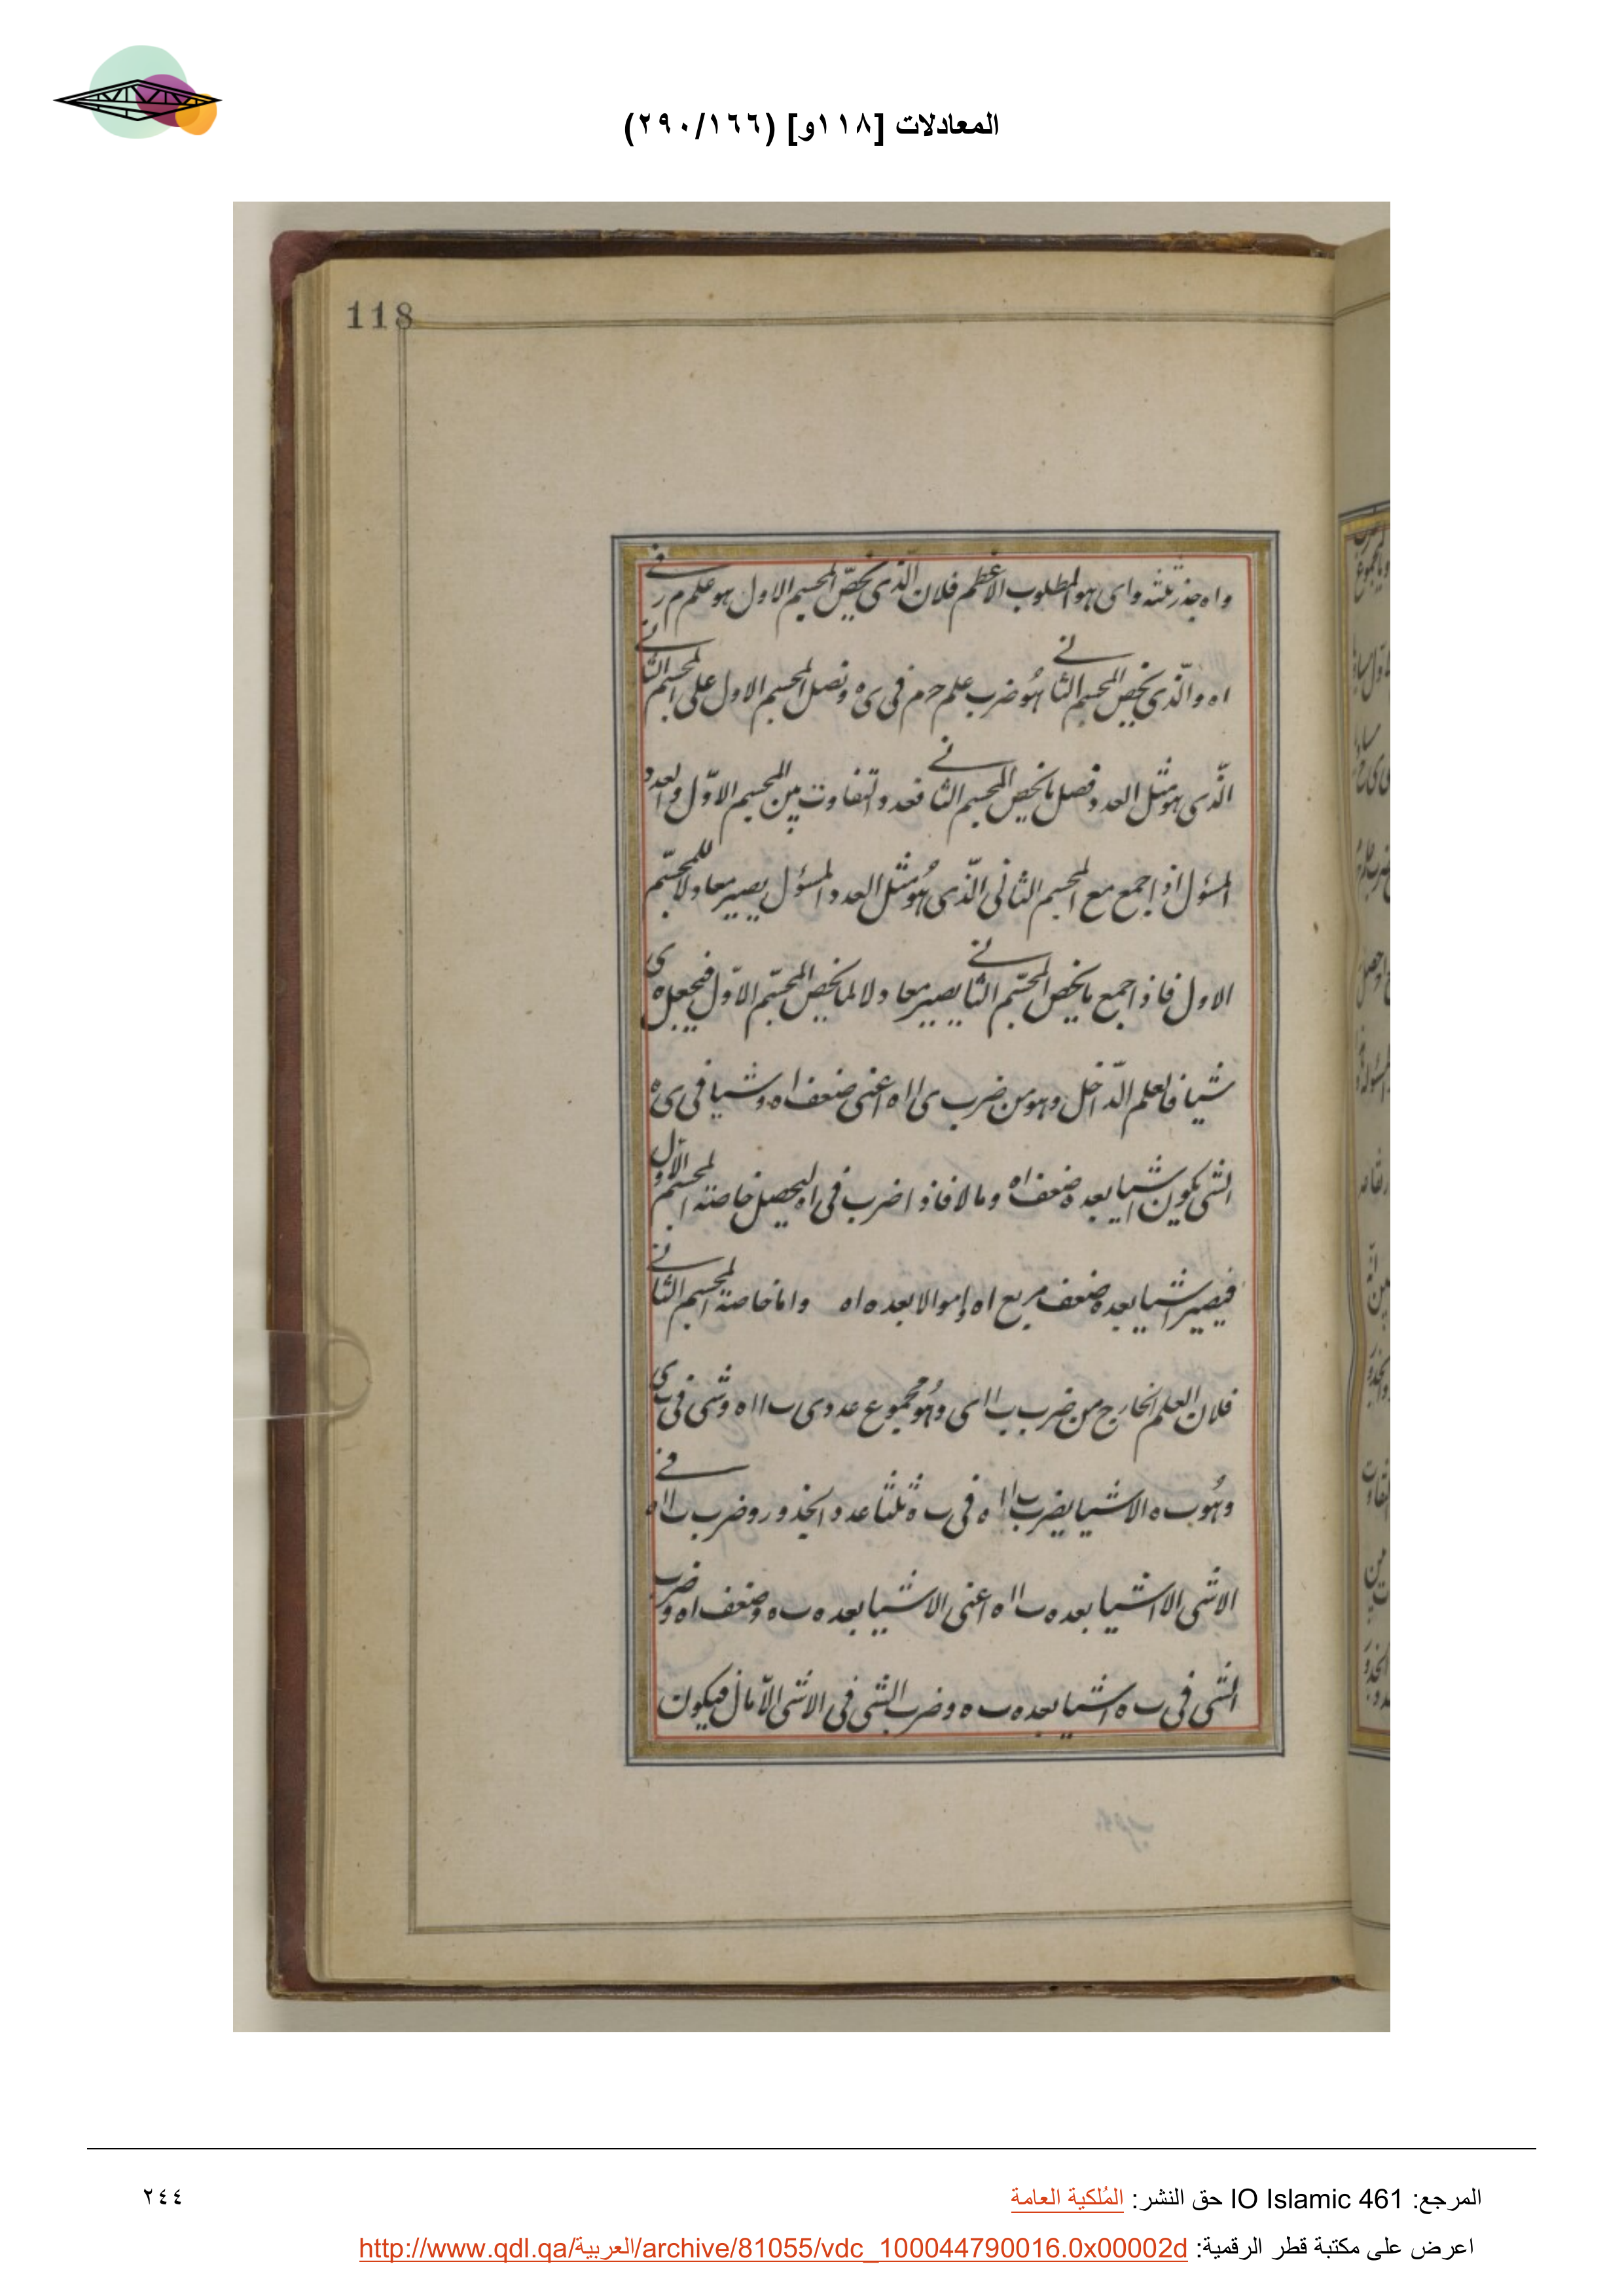 المعادلات [١١٨و] (٢٩٠/١٦٦)
118
واه جذر ثلثه واى هو المطلوب الاعظم فلان الّذى يخصّ المجسم الاول هو علم م ر فى
اه والّذى يخص المجسم الثانى هو ضرب علم حرم فى ى ه ونصل المجسم الاول على المجسم الثانى
الّذى هو مثل العدد فصل ما يخص المجسم الثانى فعدد تفاوت بين المجسم الاوّل والعدد
المسؤل اذا جمع مع المجسم الثانى الّذى هو مثل العدد المسؤل يصير معادلا للمجسّم
الاول فاذا جمع ما يخص المجسّم الثانى يصير معادلا لما يخص المجسّم الاوّل فيجعل ه ى
شيا فالعلم الدّاخل وهو من ضرب ى ا اه اعنى ضعف اه وشيا فى ى ه
الشى يكون اشيا بعده ضعف اه ومالا فاذا ضرب فى اه ليحصل خاصة المجسم الاوّل
فيصير اشيا بعده ضعف مربع اه واموالا بعده اه واما خاصة المجسم الثانى
فلان العلم الخارج من ضرب ب ا اى وهو مجموع عددى ب ا اه وشى فى ب ى
وهو ب ه الا شيا يضرب ب ا اه فى ب ه ثلثا عدد الجذور وضرب ب ا اه فى
الا شى الا اشيا بعده ب ا اه اعنى الا اشيا بعده ب ه وضعف اه وضرب
الشى فى ب ه اشيا بعده ب ه وضرب الشى فى الا شى الّا مال فيكون
المرجع: IO Islamic 461 حق النشر: المُلكية العامة
٢٤٤
اعرض على مكتبة قطر الرقمية: http://www.qdl.qa/العربية/archive/81055/vdc_100044790016.0x00002d